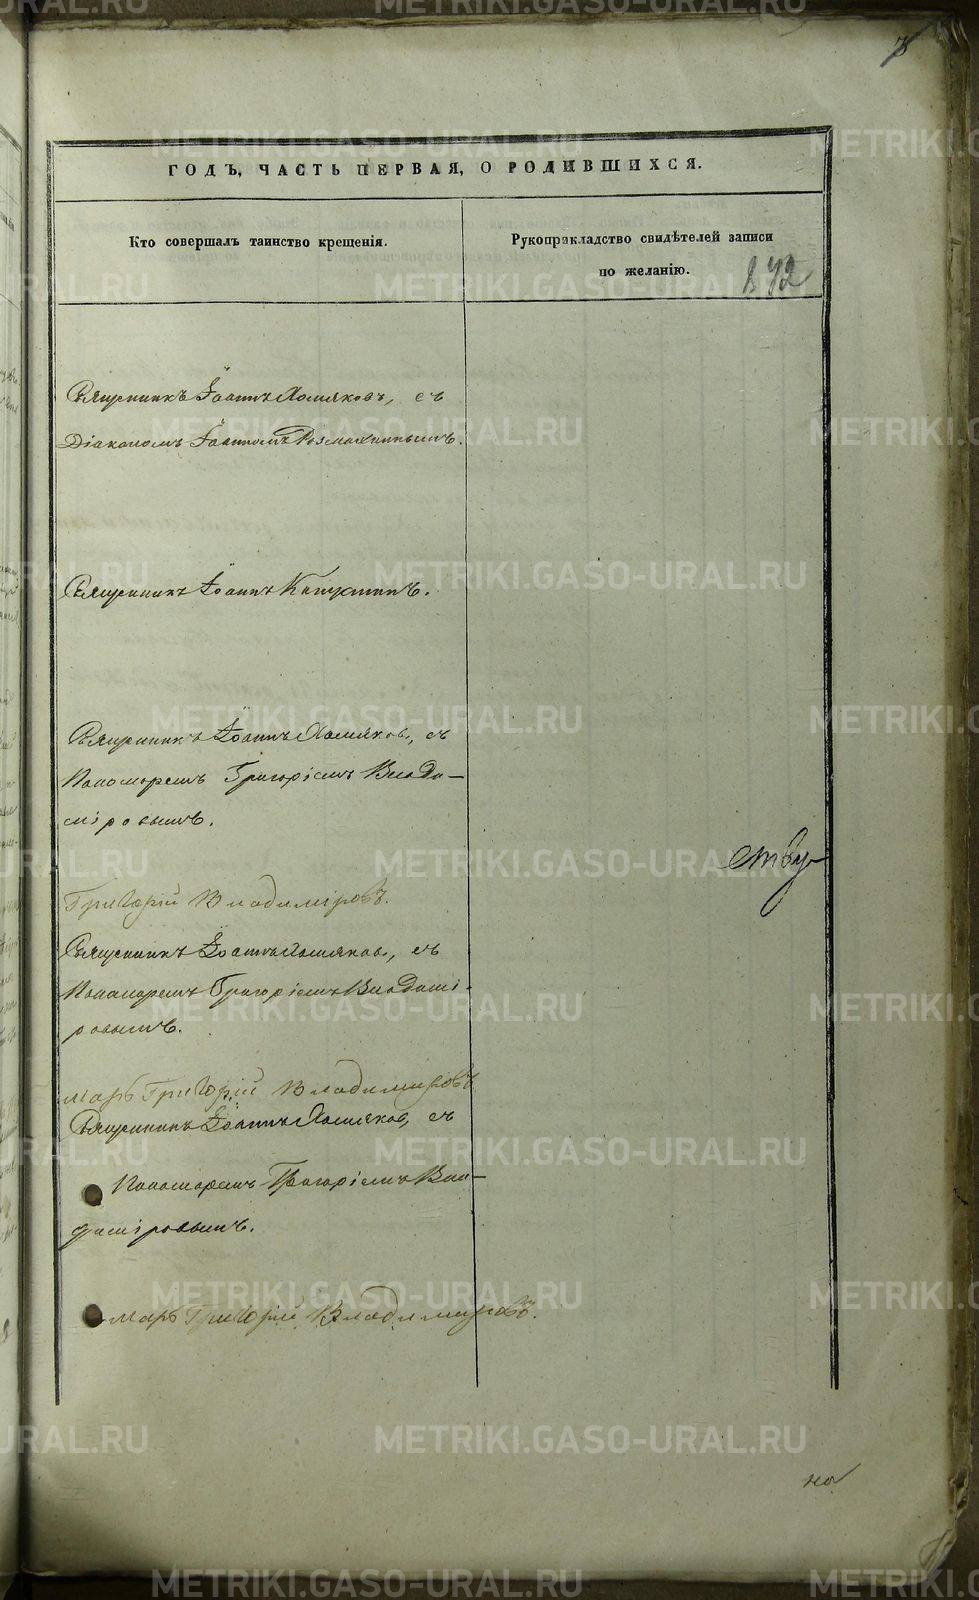 ГОДЪ, ЧАСТЬ ПЕРВАЯ, О РОДИВШИХСЯ.
Кто совершалъ таинство крещенія.
Рукоприкладство свидѣтелей записи
по желанію.
872
Священникъ Іоаннъ Хомяковъ, съ
Діакономъ Іоанномъ
Священникъ Іоаннъ
Священникъ Іоаннъ Хомяковъ, съ
Пономаремъ Григоріемъ Влади—
міровымъ.
ству
Григорій Владиміровъ.
Священникъ Іоаннъ Хомяковъ, съ
Пономаремъ Григоріемъ Владимі-
ровымъ.
марь Григорій Владимировъ
Священникъ Іоаннъ Хомяковъ, съ
Пономаремъ Григоріемъ Вла—
диміровымъ.
марь Григорій Владимировъ.
но
METRIKI.GASO-URAL.RU